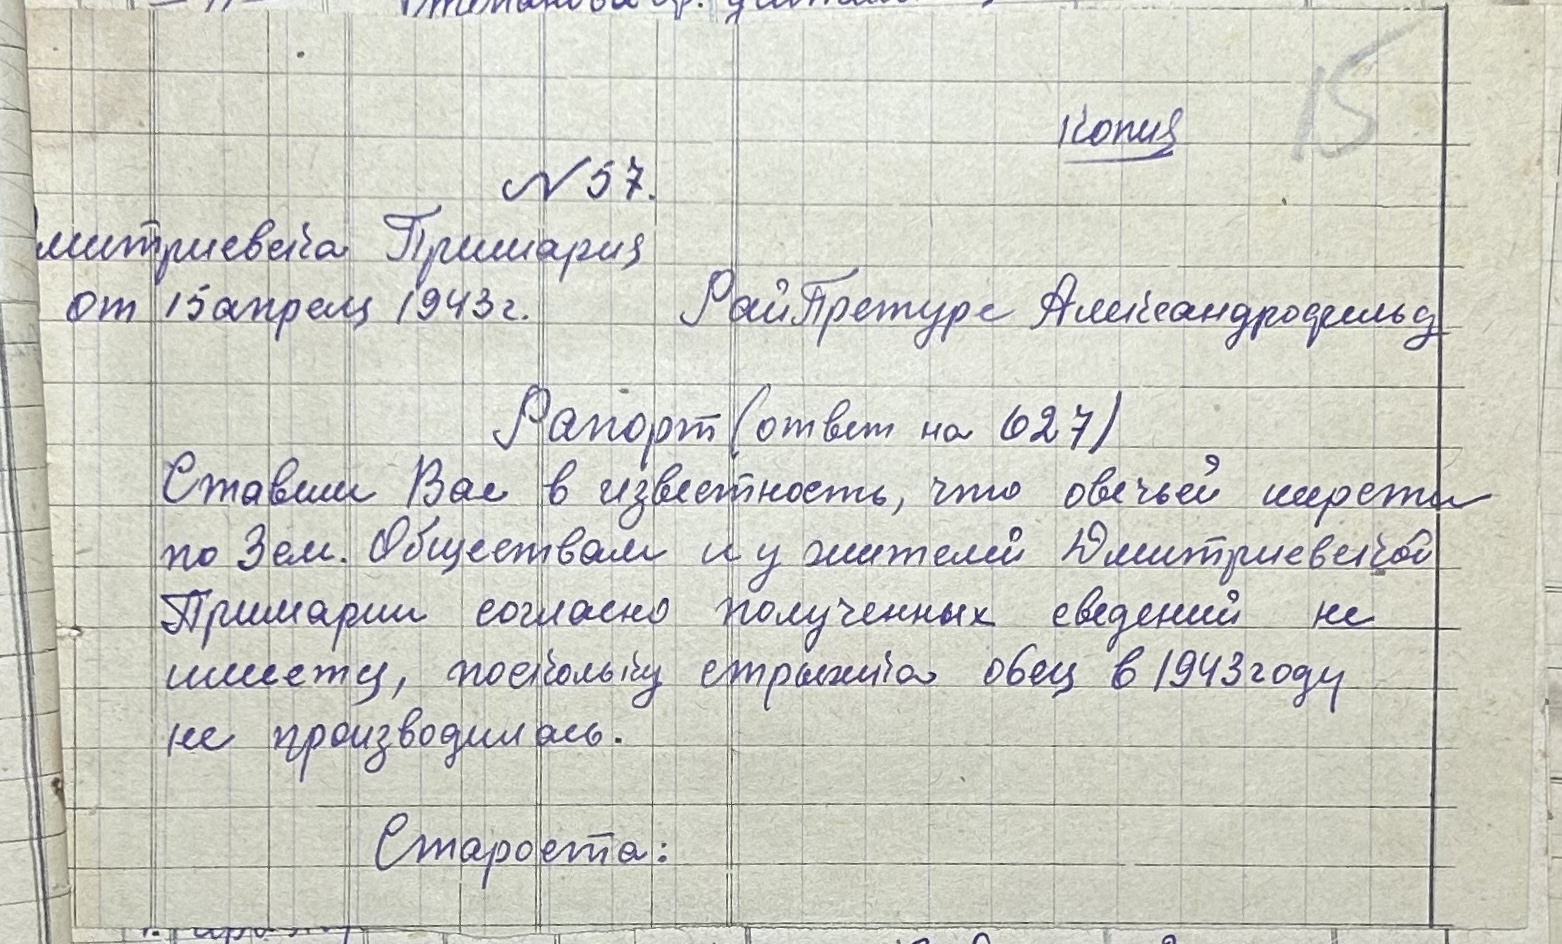 15
Копия
№ 57.
Дмитриевска Примария
от 15 апреля 1943 г.
РайПретуре Александрофельд
Рапорт (ответ на 627)
Ставим Вас в известность, что овечьей шерсти
по Зем. Обществам и у жителей Дмитриевской
Примарии согласно полученных сведений не
имеется, поскольку стрыжка овец в 1943 году
не производилась.
Староста: